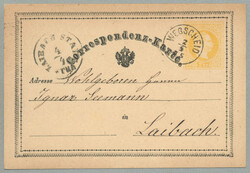 LAIBACH STADT
Correspondenz-Karte.
Adresse Wohlgeboren Herrn
Ignaz Seemann
in
Laibach.